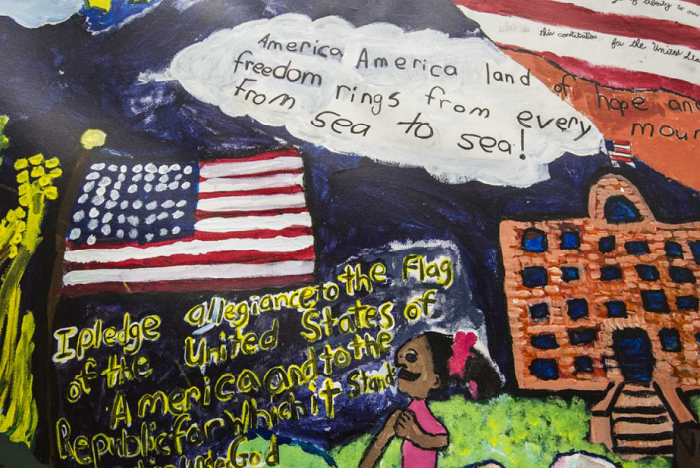 America America land of hope and
freedom rings from every moun
From sea to sea!
this constitution for the United Sta
I pledge allegiance to the Flag
of the United States of
America and to the
Republic for which it stands
under God